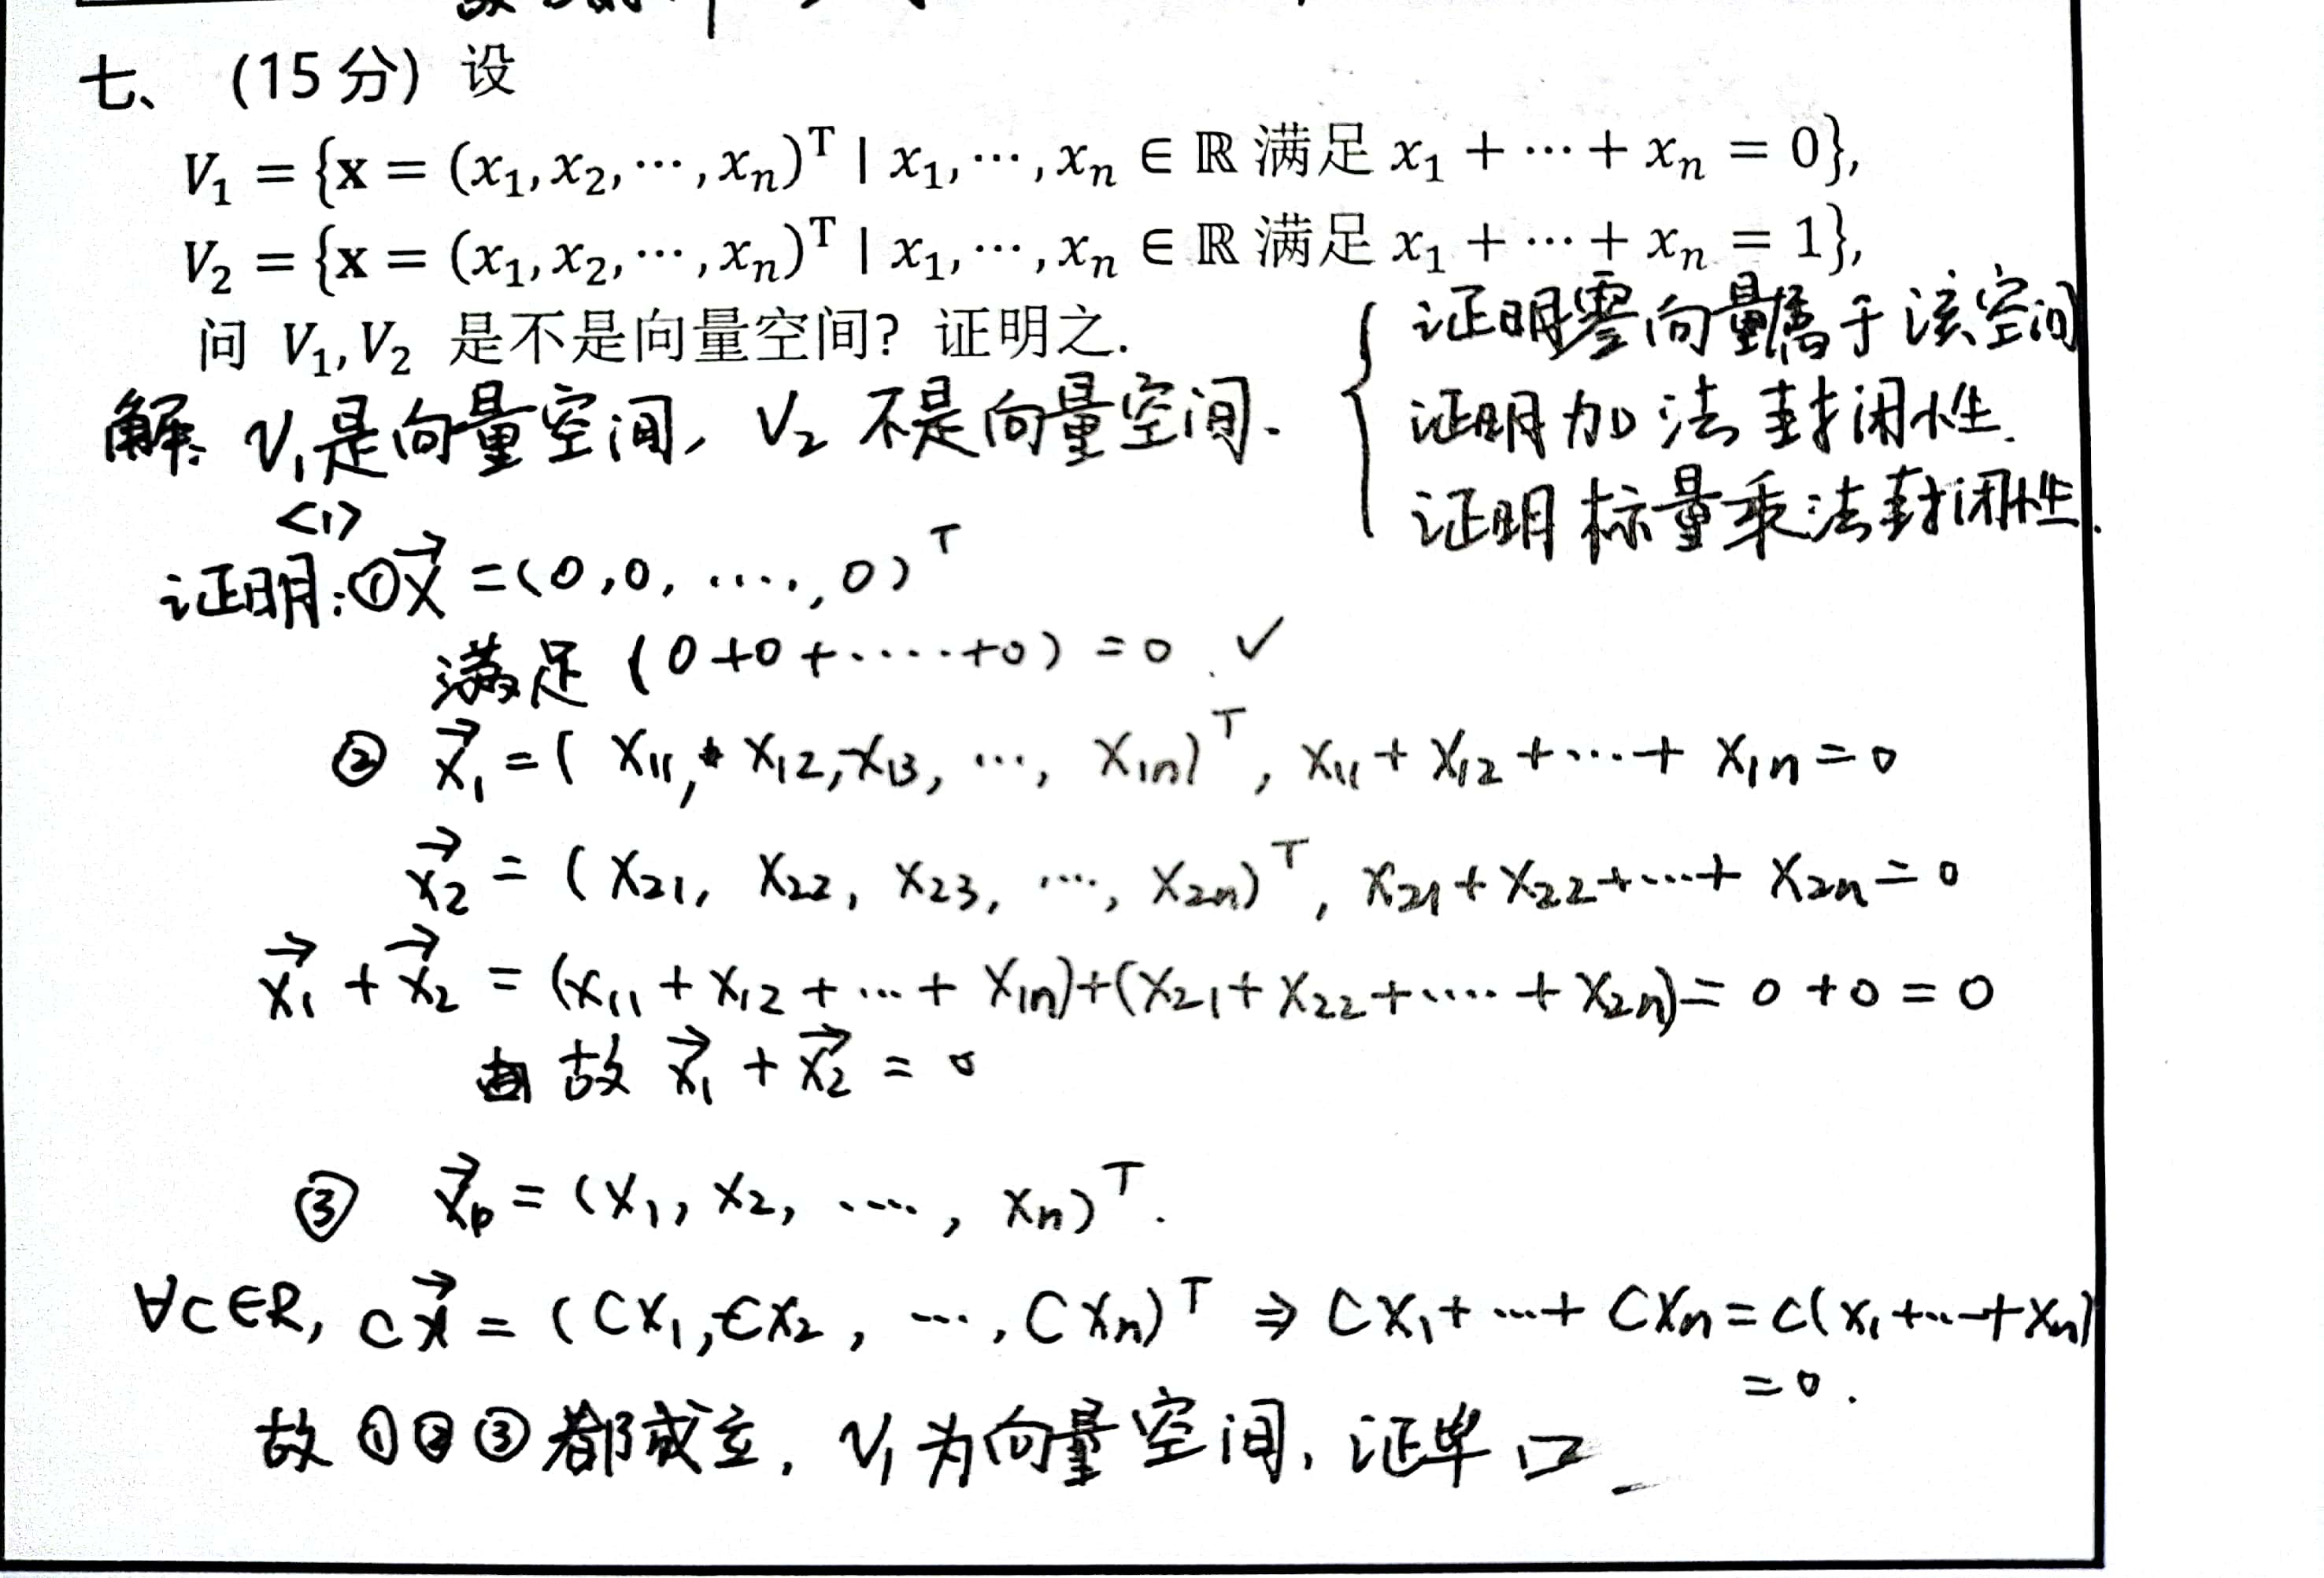 七、(15分) 设
V₁ = {x = (x₁, x₂, ⋯, xₙ)ᵀ | x₁, ⋯, xₙ ∈ ℝ 满足 x₁ + ⋯ + xₙ = 0},
V₂ = {x = (x₁, x₂, ⋯, xₙ)ᵀ | x₁, ⋯, xₙ ∈ ℝ 满足 x₁ + ⋯ + xₙ = 1},
问 V₁, V₂ 是不是向量空间? 证明之.
证明零向量属于该空间
证明加法封闭性.
证明标量乘法封闭性.
解: V₁是向量空间, V₂ 不是向量空间.
<1>
证明: ① x⃗ = (0, 0, ⋯, 0)ᵀ
满足 (0+0+⋯+0) = 0. ✓
② x⃗₁ = (x₁₁, x₁₂, x₁₃, ⋯, x₁ₙ)ᵀ, x₁₁ + x₁₂ + ⋯ + x₁ₙ = 0
x⃗₂ = (x₂₁, x₂₂, x₂₃, ⋯, x₂ₙ)ᵀ, x₂₁ + x₂₂ + ⋯ + x₂ₙ = 0
x⃗₁ + x⃗₂ = (x₁₁ + x₁₂ + ⋯ + x₁ₙ) + (x₂₁ + x₂₂ + ⋯ + x₂ₙ) = 0 + 0 = 0
故 x⃗₁ + x⃗₂ = 0
③ x⃗ = (x₁, x₂, ⋯, xₙ)ᵀ.
∀C∈R, cx⃗ = (Cx₁, Cx₂, ⋯, Cxₙ)ᵀ ⇒ Cx₁ + ⋯ + Cxₙ = C(x₁ + ⋯ + xₙ)
= 0.
故 ①②③都成立, V₁为向量空间, 证毕 □